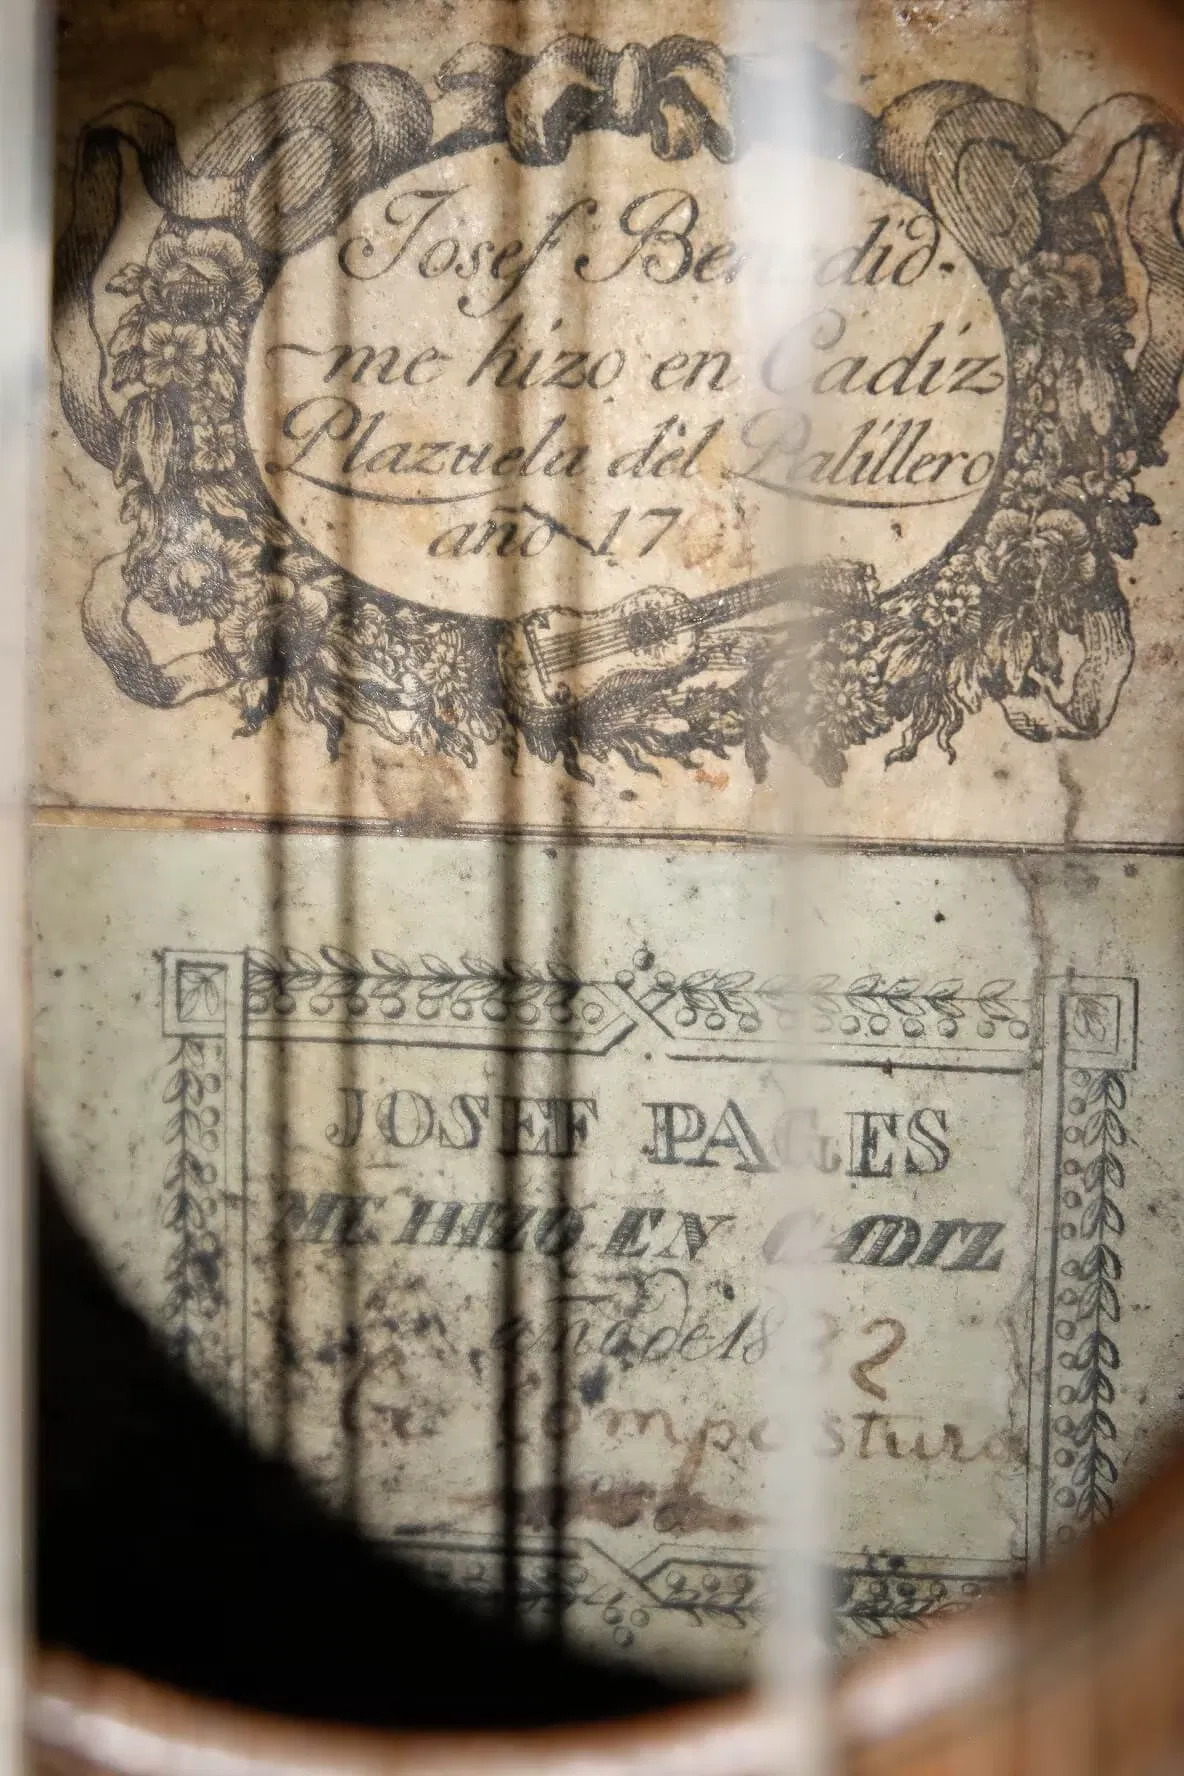 Josef Benedid.
me hizo en Cadiz
Plazuela del Palillero
año 17
JOSEF PAGES
ME HIZO EN CADIZ
año de 18 2
compostura